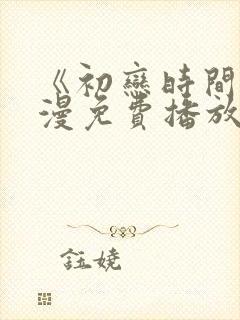 《初戀時間
漫免費播放
鈺嬈